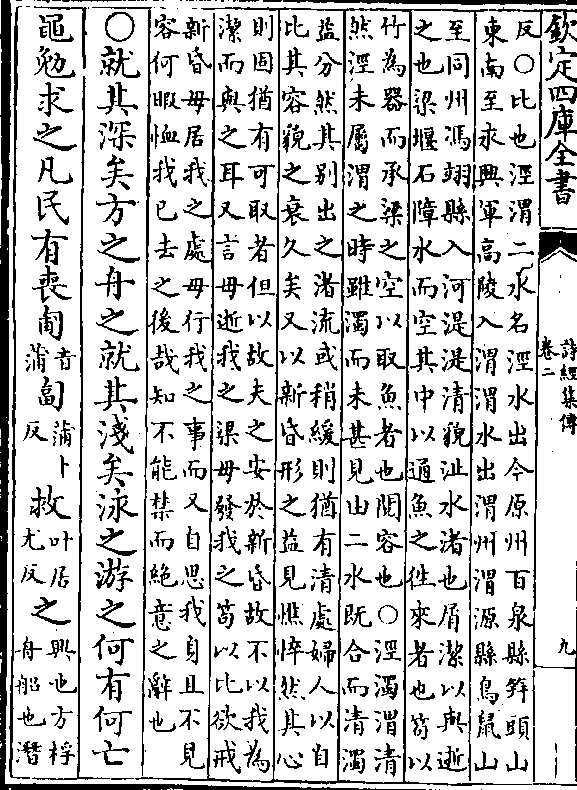 欽定四庫全書
詩經集傳
卷二
九
反○比也涇渭二水名涇水出今原州百泉縣筓頭山
東南至永興軍高陵入渭渭水出渭州渭源縣鳥鼠山
至同州馮翊縣入河湜湜清貌沚水渚也屑潔以與逝
之也梁堰石障水而空其中以通魚之徃來者也笱以
竹為器而承梁之空以取魚者也閱容也○涇濁渭清
然涇未屬渭之時雖濁而未甚見由二水既合而清濁
益分然其別出之渚流或稍緩則猶有清處婦人以自
比其容貌之衰久矣又以新昏形之益見憔悴然其心
則固猶有可取者但以故夫之安於新昏故不以我為
潔而與之耳又言毋逝我之梁毋發我之笱以比欲戒
新昏毋居我之處毋行我之事而又自思我身且不見
容何暇恤我已去之後哉知不能禁而絶意之辭也
○就其深矣方之舟之就其淺矣泳之游之何有何亡
黽勉求之凡民有喪匍音蒲匐蒲卜反救叶居尤反之興也方桴舟船也潛